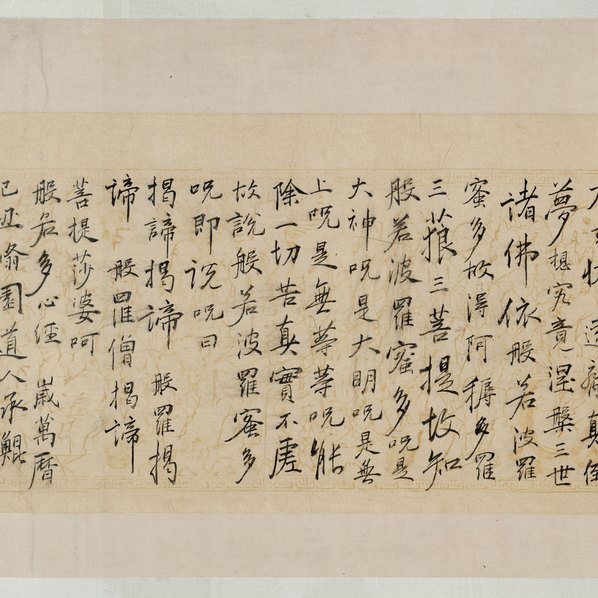 遠離顛倒
夢想究竟涅槃三世
諸佛依般若波羅
蜜多故得阿耨多羅
三藐三菩提故知
般若波羅蜜多呪是
大神呪是大明呪是無
上呪是無等等呪能
除一切苦真實不虛
故說般若波羅蜜多
呪即說呪曰
揭諦揭諦 般羅揭
諦 般羅僧揭諦
菩提莎婆呵
般若多心經 歲萬曆
己丑園道人承鯤